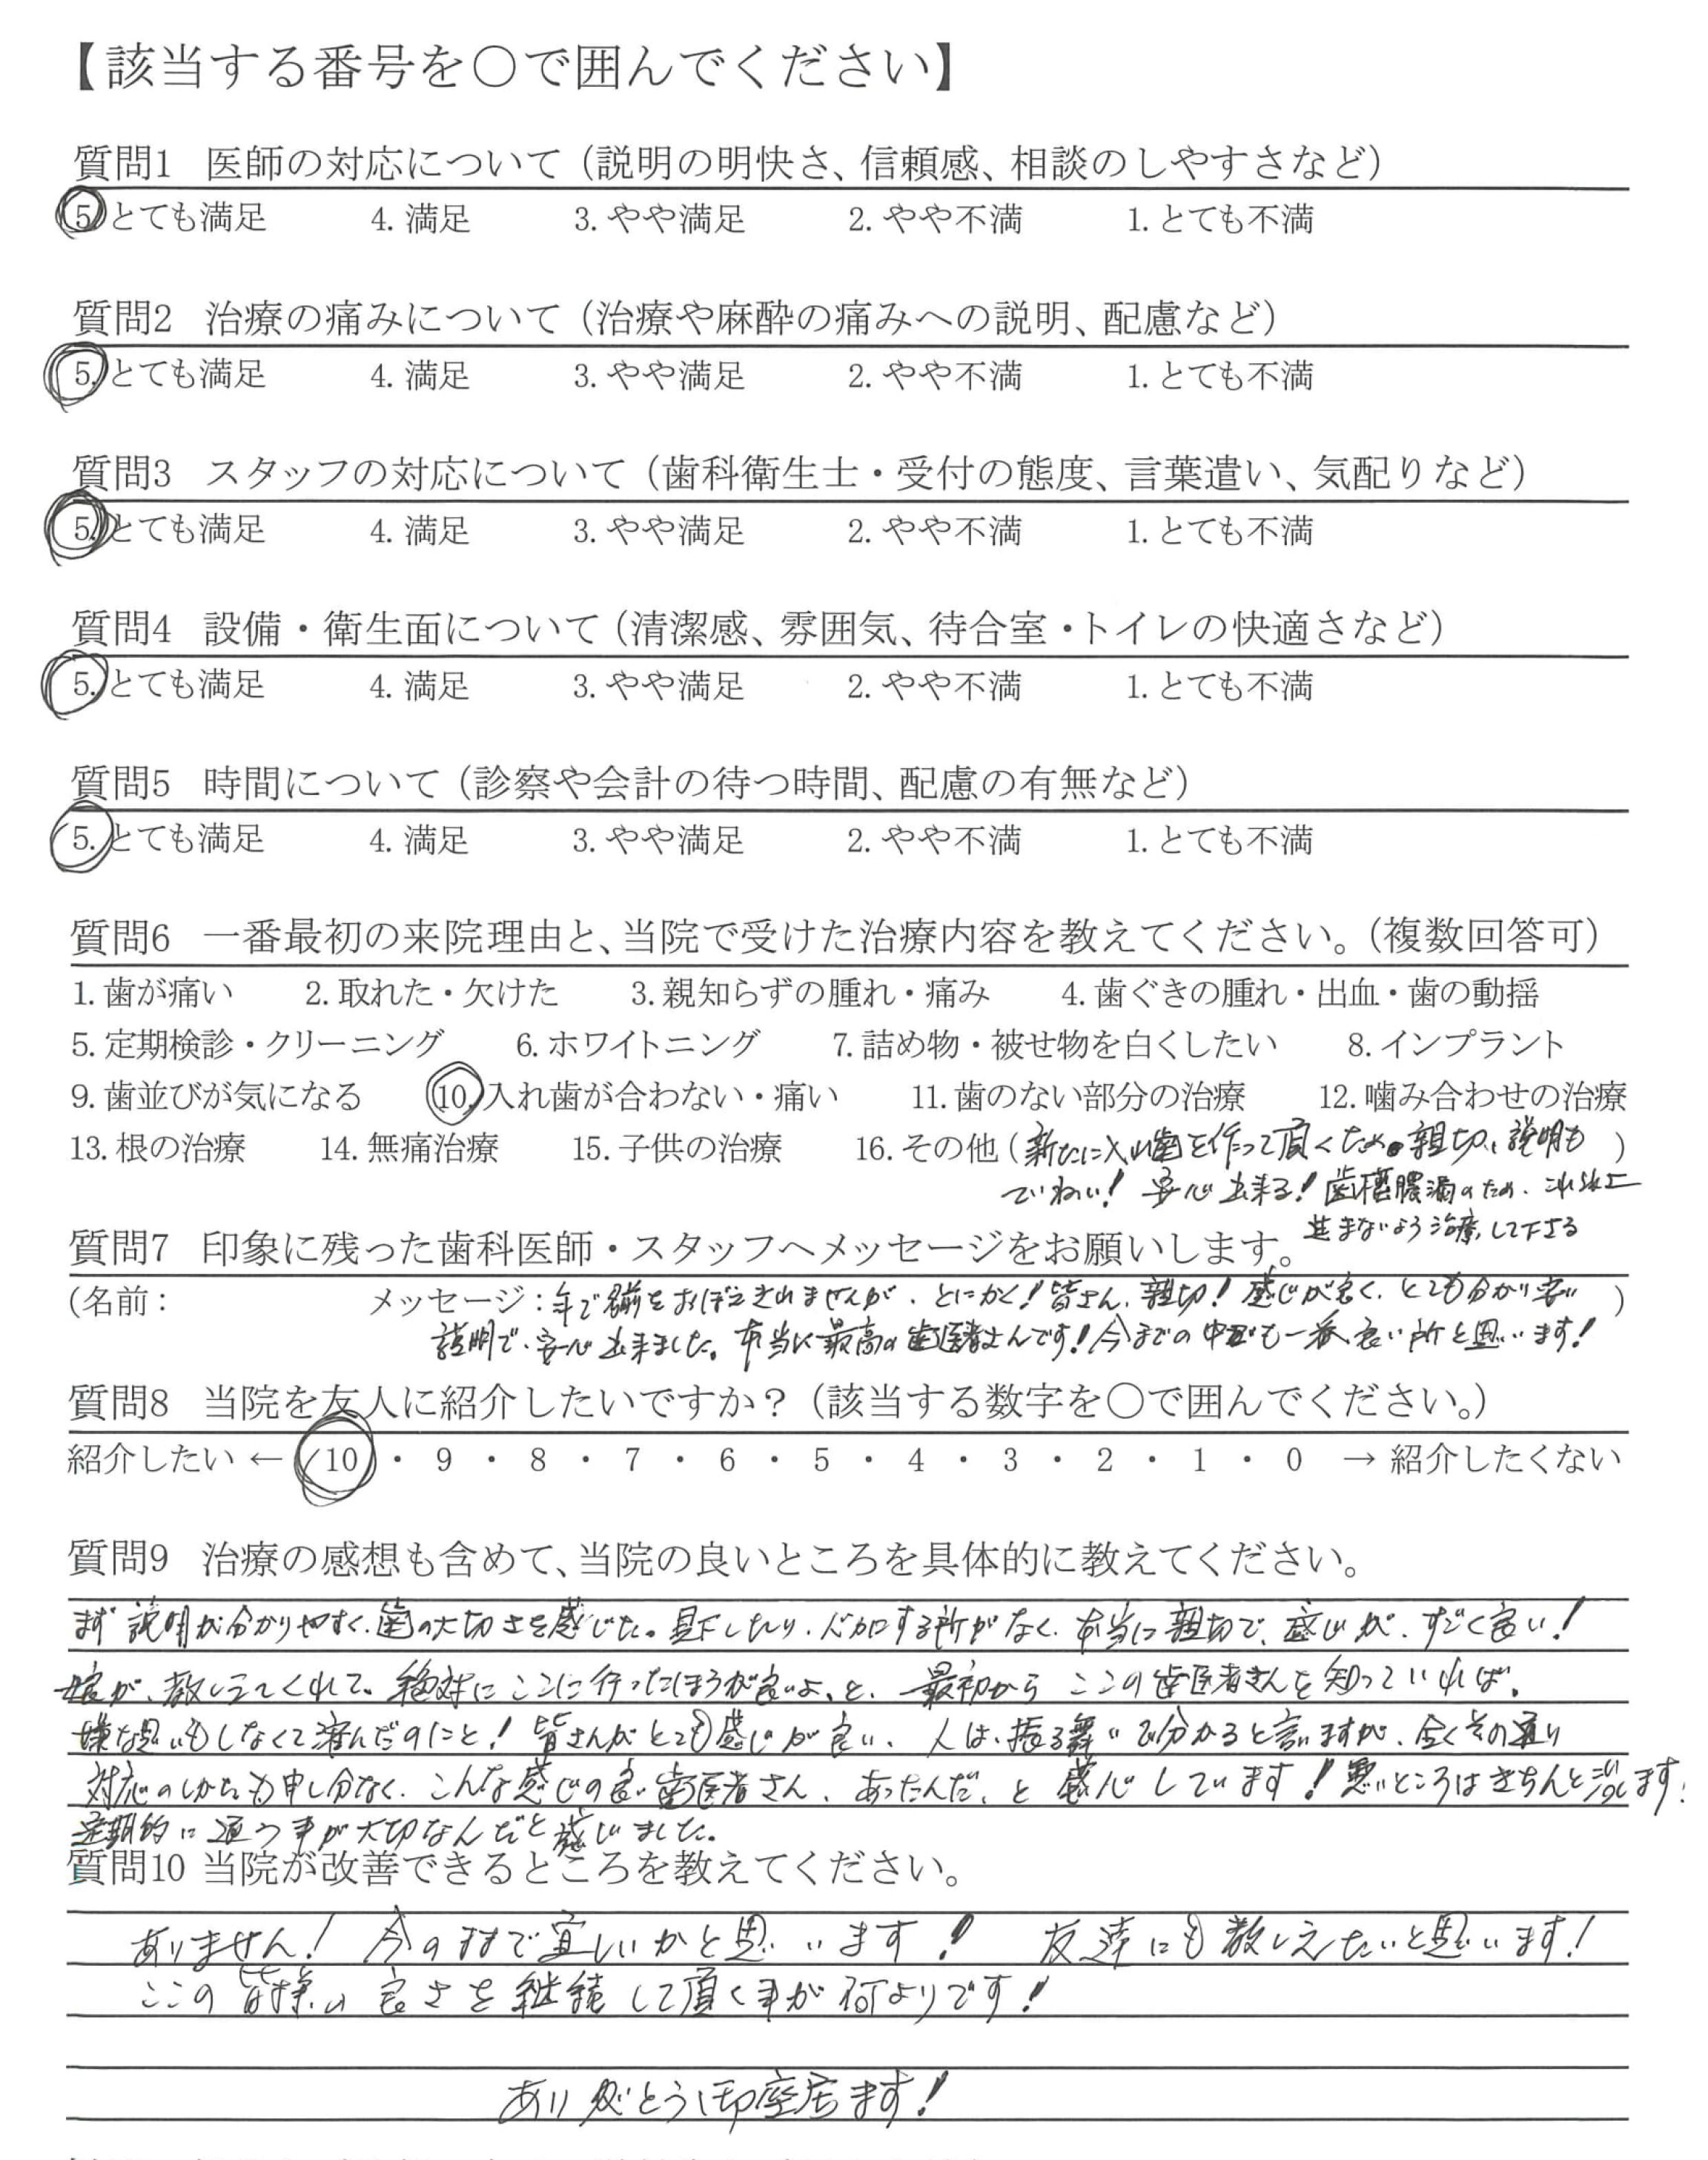 【該当する番号を〇で囲んでください】
質問1 医師の対応について（説明の明快さ、信頼感、相談のしやすさなど）
5. とても満足 4. 満足 3. やや満足 2. やや不満 1. とても不満
質問2 治療の痛みについて（治療や麻酔の痛みへの説明、配慮など）
5. とても満足 4. 満足 3. やや満足 2. やや不満 1. とても不満
質問3 スタッフの対応について（歯科衛生士・受付の態度、言葉遣い、気配りなど）
5. とても満足 4. 満足 3. やや満足 2. やや不満 1. とても不満
質問4 設備・衛生面について（清潔感、雰囲気、待合室・トイレの快適さなど）
5. とても満足 4. 満足 3. やや満足 2. やや不満 1. とても不満
質問5 時間について（診察や会計の待つ時間、配慮の有無など）
5. とても満足 4. 満足 3. やや満足 2. やや不満 1. とても不満
質問6 一番最初の来院理由と、当院で受けた治療内容を教えてください。（複数回答可）
1. 歯が痛い 2. 取れた・欠けた 3. 親知らずの腫れ・痛み 4. 歯ぐきの腫れ・出血・歯の動揺
5. 定期検診・クリーニング 6. ホワイトニング 7. 詰め物・被せ物を白くしたい 8. インプラント
9. 歯並びが気になる 10. 入れ歯が合わない・痛い 11. 歯のない部分の治療 12. 噛み合わせの治療
13. 根の治療 14. 無痛治療 15. 子供の治療 16. その他（新たに入れ歯を作って頂くため。親切、説明も）
ていねい！ 安心出来る！ 歯槽膿漏のため、これ以上
進まないよう治療して下さる
質問7 印象に残った歯科医師・スタッフへメッセージをお願いします。
（名前： メッセージ：年で名前をおぼえきれませんが、とにかく！皆さん、親切！感じが良く、とても分かり易い）
説明で、安心出来ました。本当に最高の歯医者さんです！今までの中でも一番良い所と思います！
質問8 当院を友人に紹介したいですか？（該当する数字を〇で囲んでください。）
紹介したい ← 10 ・ 9 ・ 8 ・ 7 ・ 6 ・ 5 ・ 4 ・ 3 ・ 2 ・ 1 ・ 0 → 紹介したくない
質問9 治療の感想も含めて、当院の良いところを具体的に教えてください。
まず説明が分かりやすく、歯の大切さを感じた。見下したり、バカにする所がなく、本当に親切で、感じが、すごく良い！
娘が、教しえてくれて。絶対にここに行ったほうが良いよ、と、最初からここの歯医者さんを知っていれば。
嫌な思いもしなくて済んだのにと！皆さんがとても感じが良い、人は、振る舞いで分かると言いますが、全くその通り
対応のしかたも申し分なく、こんな感じの良い歯医者さん、あったんだ、と感心しています！悪いところはきちんと治します！
定期的に通う事が大切なんだと感じました。
質問10 当院が改善できるところを教えてください。
ありません！ 今のままで宜しいかと思います！ 友達にも教しえたいと思います！
ここの皆様の良さを継続して頂く事が何よりです！
ありがとう御座居ます！